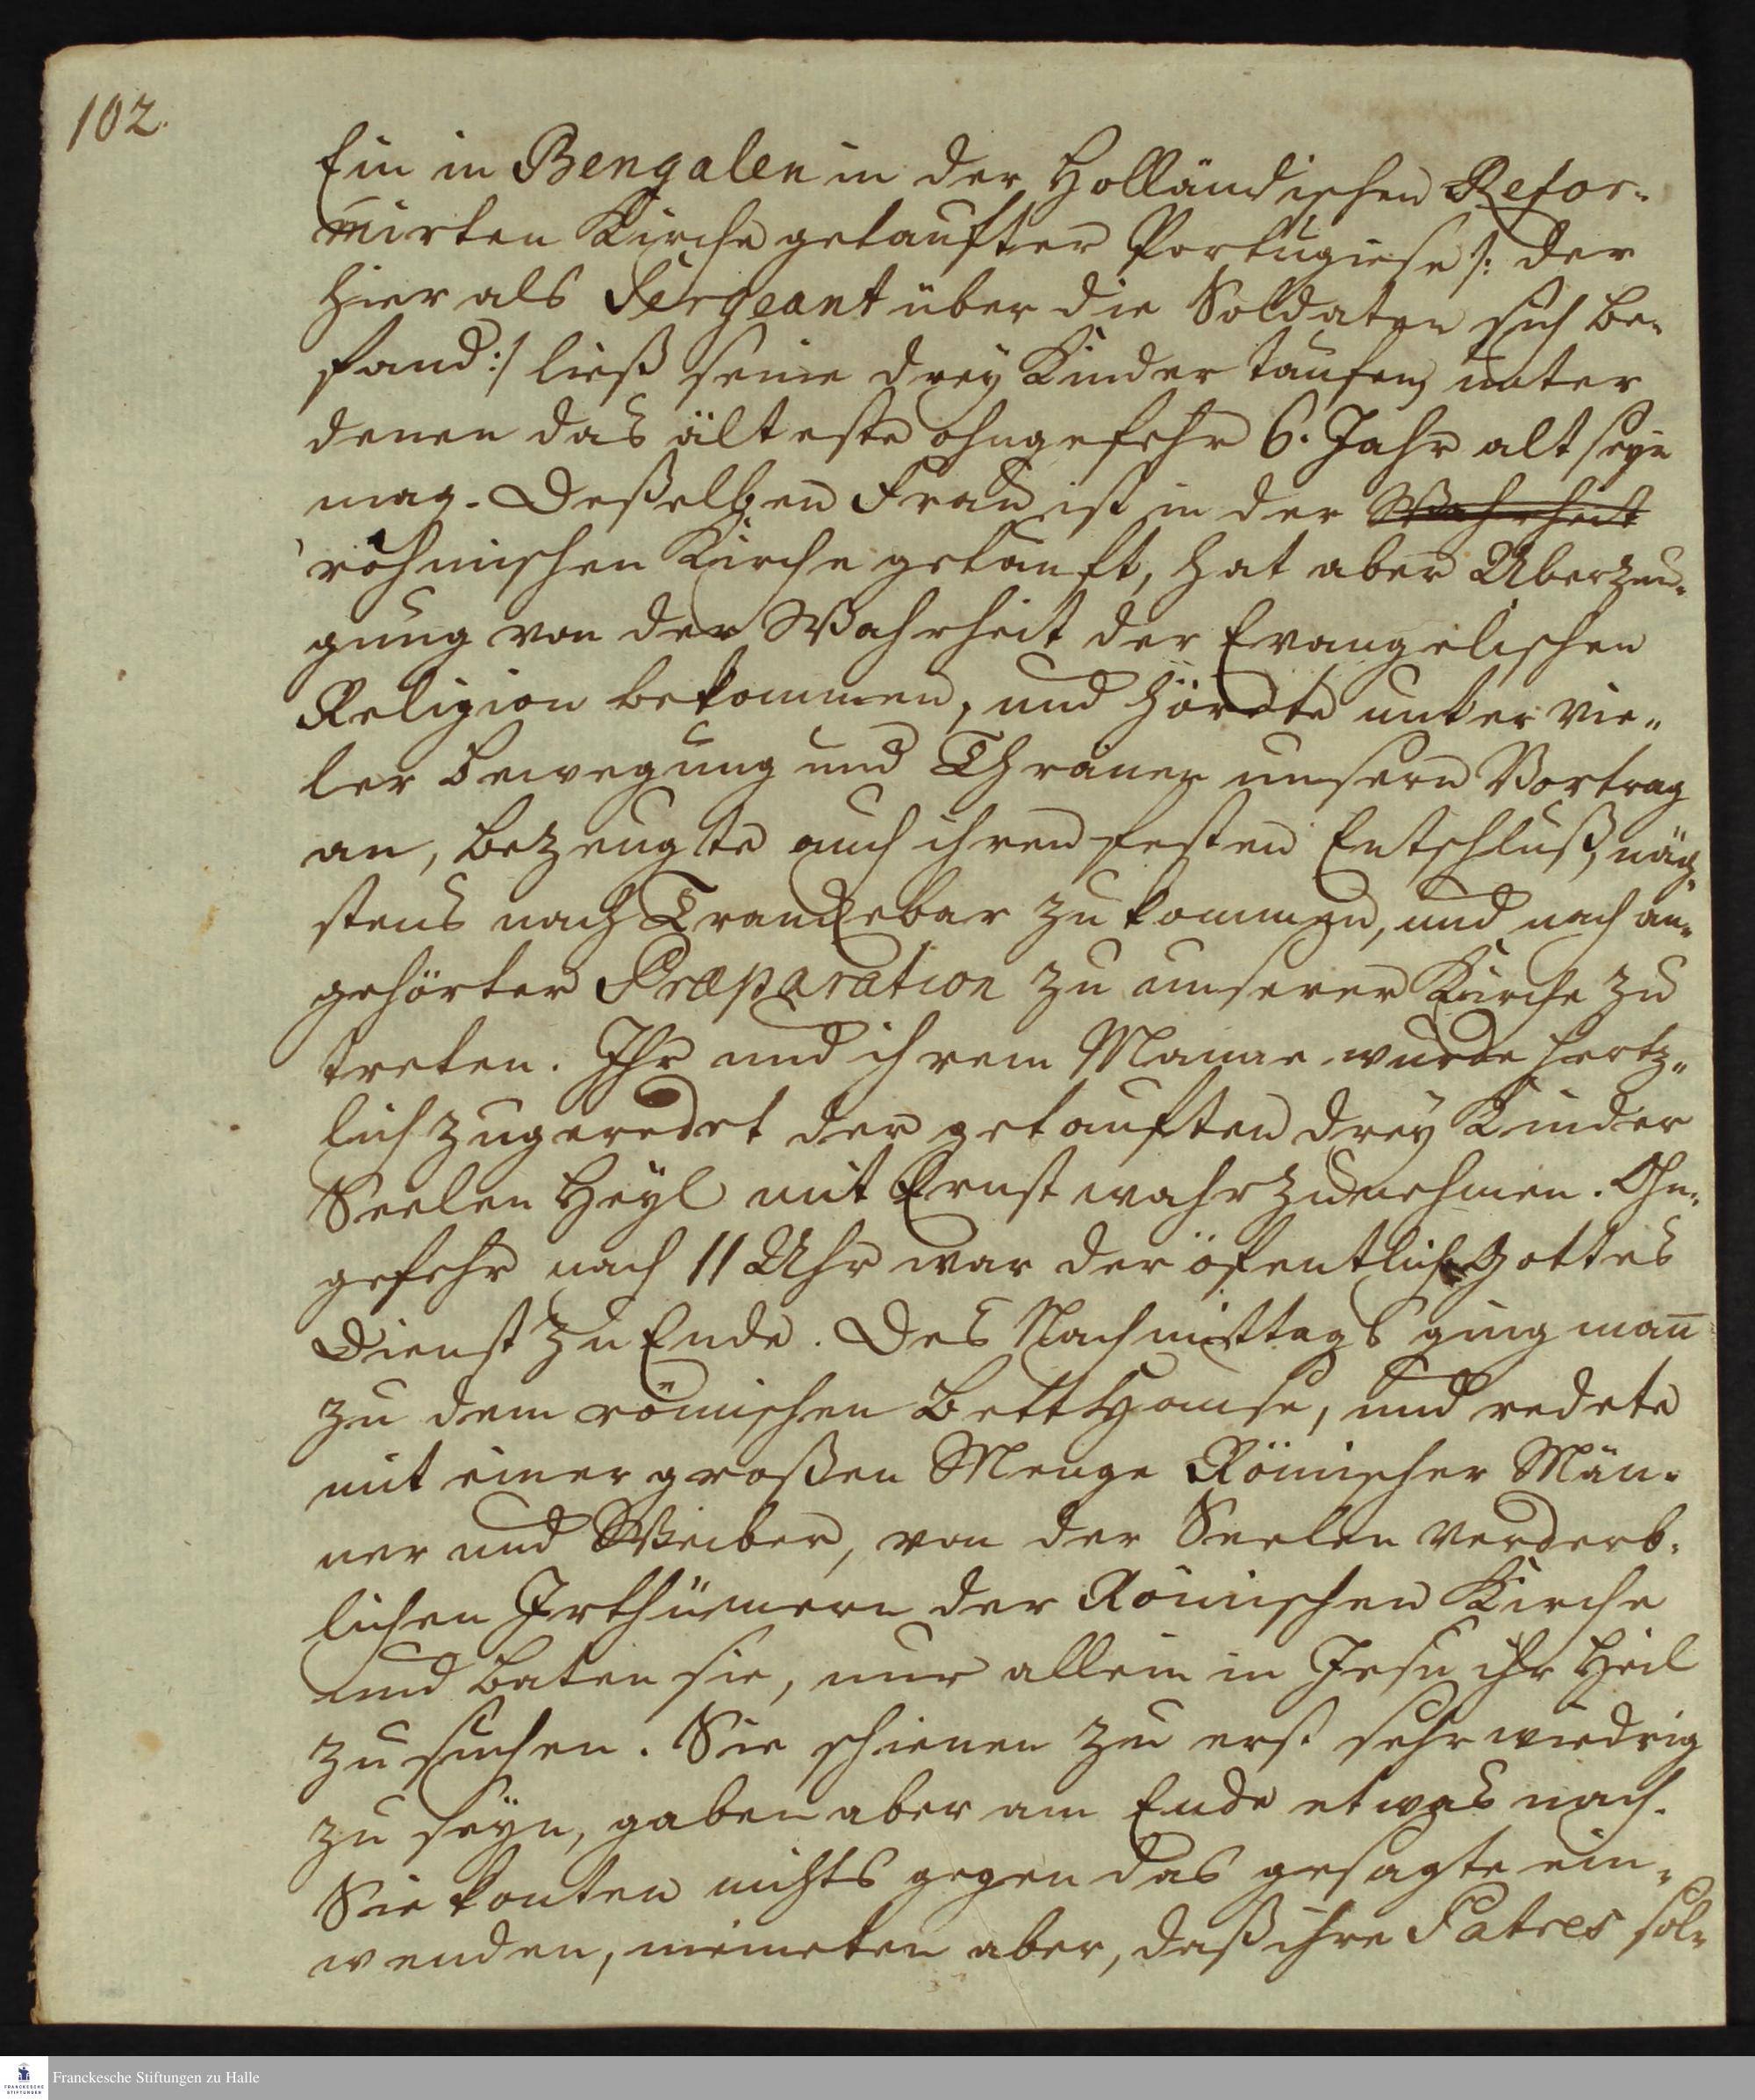 102.
Ein in Bengalen in der Holländischen Refor-
mirten Kirche getaufter Portugiese /: der
hier als Sergeant über die Soldaten sich be-
fand :/ ließ seine drey Kinder taufen, unter
denen das älteste ohngefehr 6. Jahr alt seyn
mag. Deßelben Frau ist in der Wahrheit
röhmischen Kirche getauft, hat aber Uberzeu-
gung von der Wahrheit der Evangelischen
Religion bekommen, und hördte unter vie-
ler Bewegung und Thränen unsern Vortrag
an, bezeugte auch ihren festen Entschluß, näch-
stens nach Trankebar zu kommen, und nach an-
gehörter Præparation zu unserer Kirche zu
treten. Ihr und ihrem Manne wurde hertz-
lich zugeredet der getauften drey Kinder
Seelen Heyl mit Ernst wahrzunehmen. Ohn-
gefehr nach 11 Uhr war der öfentliche Gottes
Dienst zu Ende. Des Nachmittags ging man̅
zu dem römischen Bett Hause, und redete
mit einer großen Menge Römischer Män-
ner und Weiber, von der Seelen verderb-
lichen Irthümern der Römischen Kirche
und baten sie, nur allein in Jesu ihr Heil
zu suchen. Sie schienen zu erst sehr wiedrig
zu seyn, gaben aber am Ende etwas nach.
Sie konten nichts gegen das gesagte ein-
wenden, meineten aber, daß ihre Patres sol-
Franckesche Stiftungen zu Halle
FRANCKESCHE
STIFTUNGEN